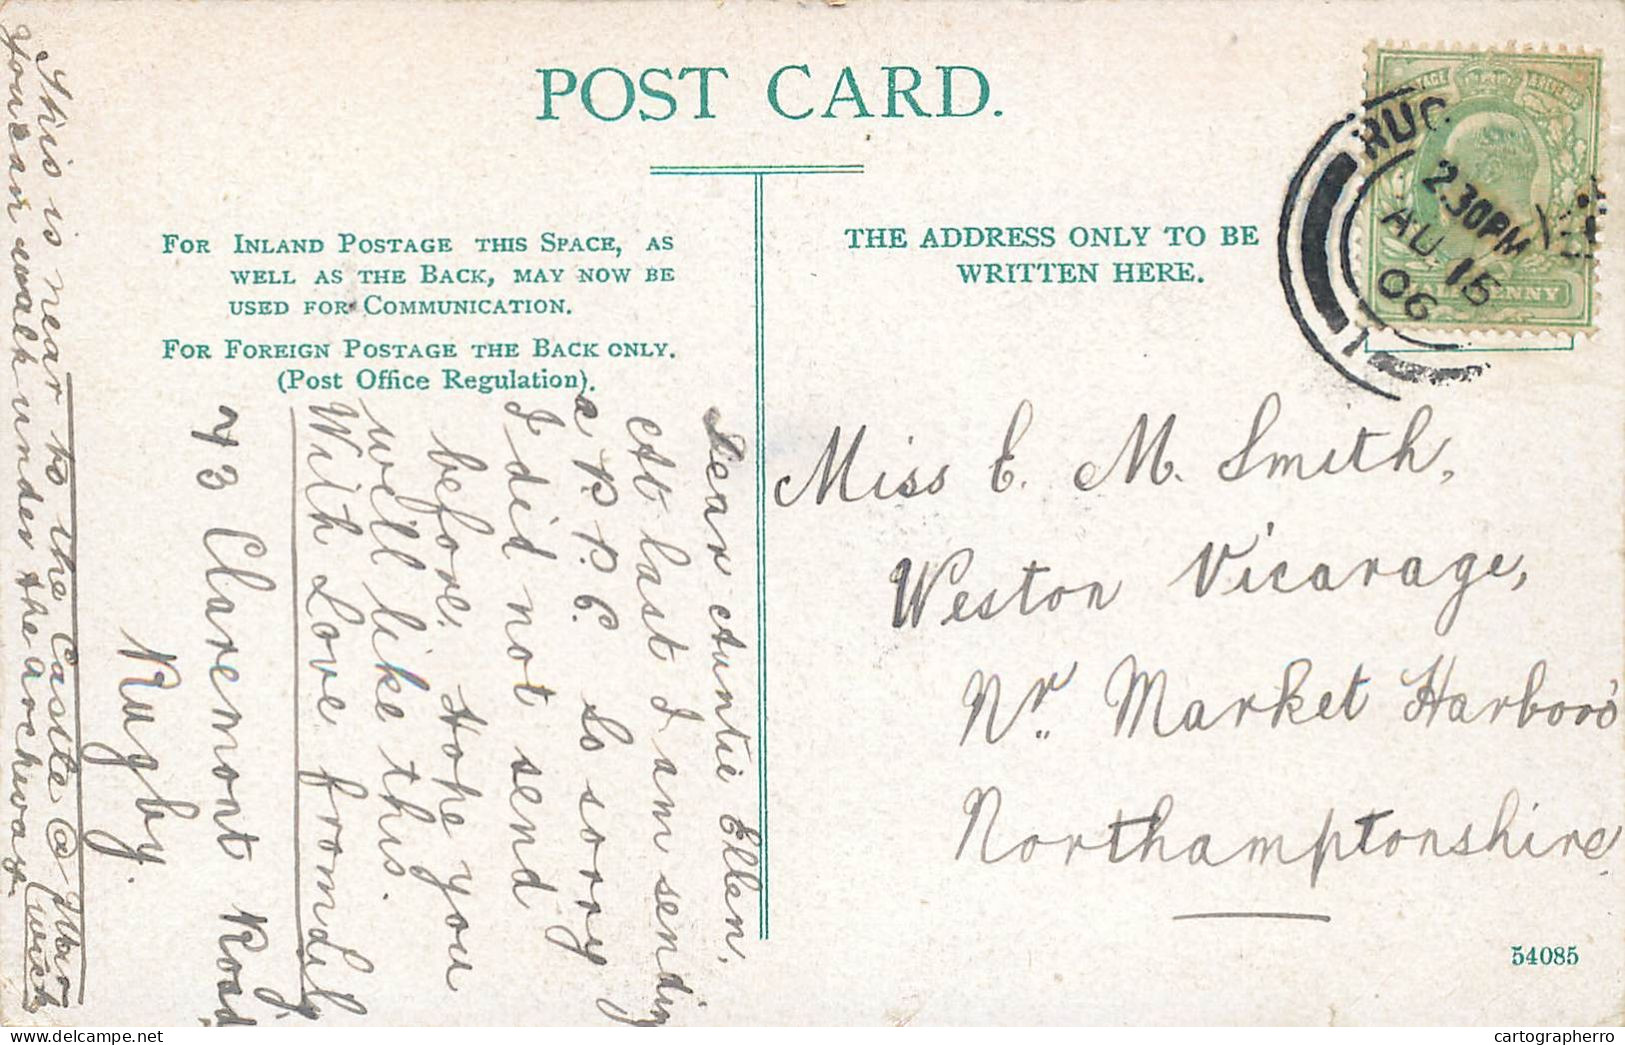 POST CARD.
FOR INLAND POSTAGE THIS SPACE, AS
WELL AS THE BACK, MAY NOW BE
USED FOR COMMUNICATION.
FOR FOREIGN POSTAGE THE BACK ONLY.
(Post Office Regulation).
THE ADDRESS ONLY TO BE
WRITTEN HERE.
2.30PM
AU 15
06
1
Miss E. M. Smith,
Weston Vicarage,
Nr. Market Harboro'
Northamptonshire
54085
Dear Auntie Ellen,
At last I am sending
a P. P. C. So sorry
I did not send
before. Hope you
will like this.
With Love from
73 Claremont Road,
Rugby.
This is near to the Castle @ War
wick
you can walk under the archway.
cartographerro